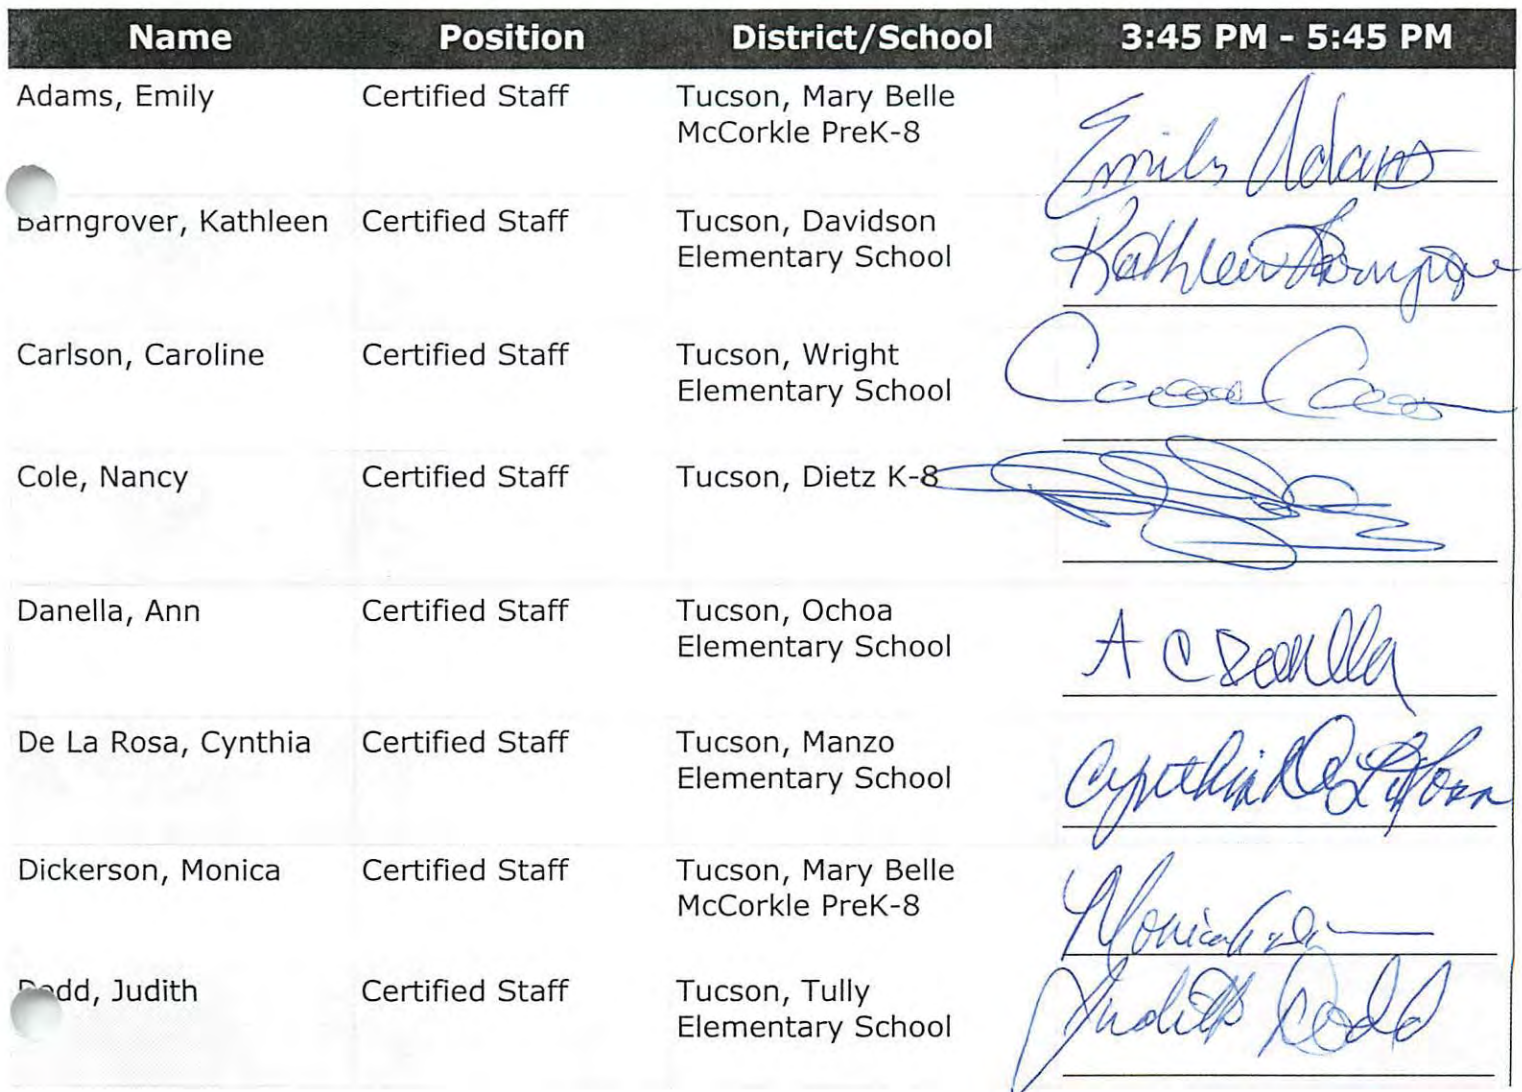 Name Position District/School 3:45 PM - 5:45 PM
Adams, Emily Certified Staff Tucson, Mary Belle
McCorkle PreK-8
Emily Adams
Barngrover, Kathleen Certified Staff Tucson, Davidson
Elementary School
Kathleen
Carlson, Caroline Certified Staff Tucson, Wright
Elementary School
Cole, Nancy Certified Staff Tucson, Dietz K-8
Danella, Ann Certified Staff Tucson, Ochoa
Elementary School
A C Danella
De La Rosa, Cynthia Certified Staff Tucson, Manzo
Elementary School
Cynthia De La Rosa
Dickerson, Monica Certified Staff Tucson, Mary Belle
McCorkle PreK-8
Monica
Dodd, Judith Certified Staff Tucson, Tully
Elementary School
Judith Dodd